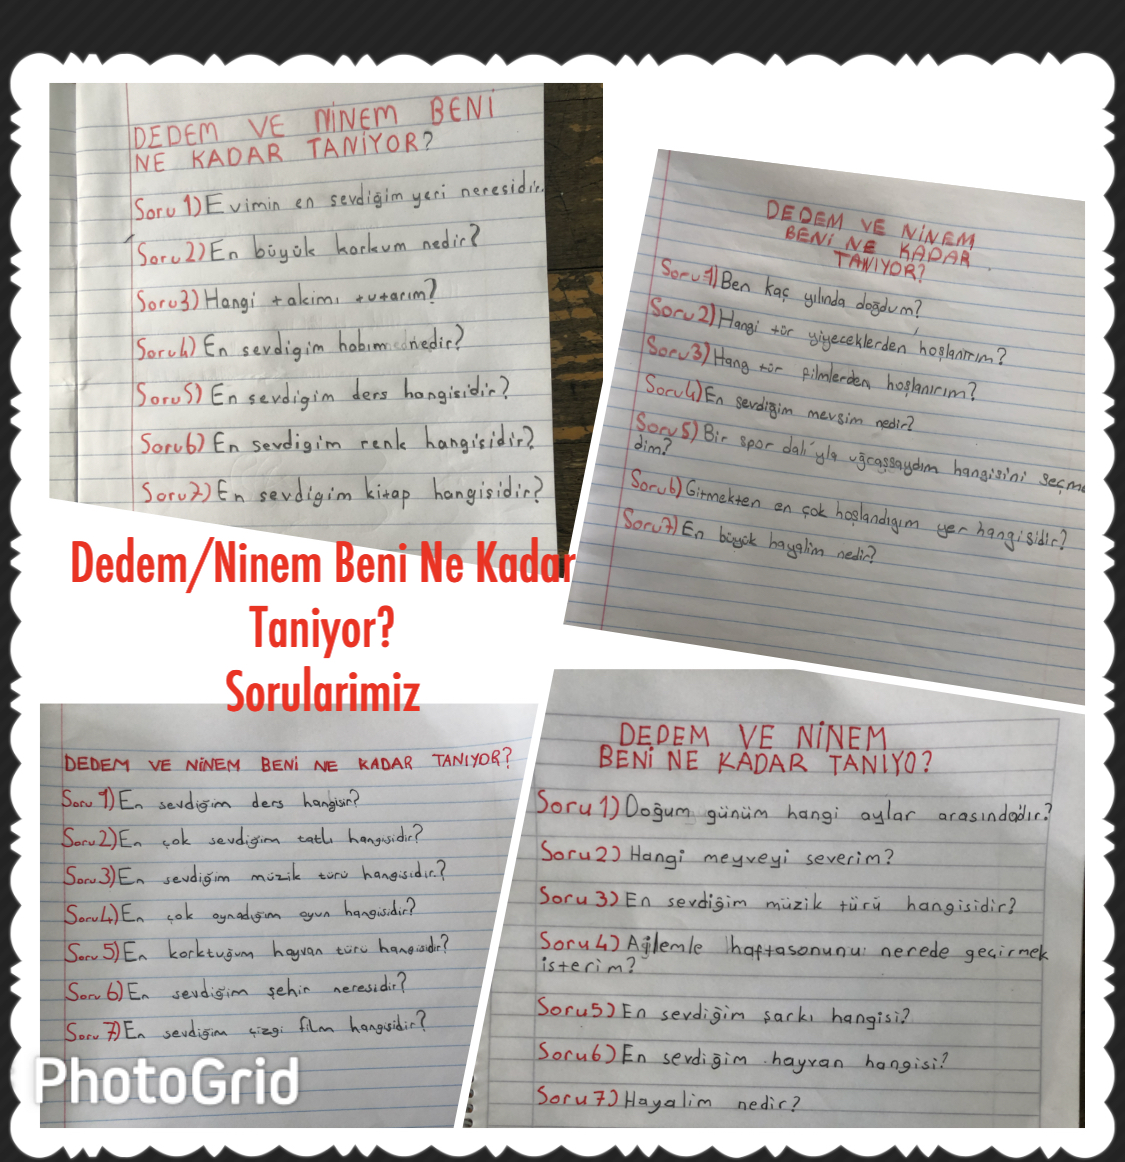 DEDEM VE NİNEM BENİ
NE KADAR TANİYOR?
Soru 1) Evimin en sevdiğim yeri neresidir.
Soru 2) En büyük korkum nedir?
Soru 3) Hangi takımı tutarım?
Soru 4) En sevdigim hobim nedir?
Soru 5) En sevdigim ders hangisidir?
Soru 6) En sevdigim renk hangisidir?
Soru 7) En sevdigim kitap hangisidir?
DEDEM VE NİNEM
BENİ NE KADAR
TANIYOR?
Soru 1) Ben kaç yılında doğdum?
Soru 2) Hangi tür yiyeceklerden hoşlanırım?
Soru 3) Hang tür filmlerden hoşlanırım?
Soru 4) En sevdiğim mevsim nedir?
Soru 5) Bir spor dalı'yla uğraşsaydım hangisini seçme
dim?
Soru 6) Gitmekten en çok hoşlandıgım yer hangisidir?
Soru 7) En büyük hayalim nedir?
Dedem/Ninem Beni Ne Kadar
Taniyor?
Sorularimiz
DEDEM VE NİNEM BENİ NE KADAR TANIYOR?
Soru 1) En sevdiğim ders hangisir?
Soru 2) En çok sevdiğim tatlı hangisidir?
Soru 3) En sevdiğim müzik türü hangisidir?
Soru 4) En çok oynadığım oyun hangisidir?
Soru 5) En korktuğum hayvan türü hangisidir?
Soru 6) En sevdiğim şehir neresidir?
Soru 7) En sevdiğim çizgi film hangisidir?
DEDEM VE NİNEM
BENİ NE KADAR TANIYO?
Soru 1) Doğum günüm hangi aylar arasındadır?
Soru 2) Hangi meyveyi severim?
Soru 3) En sevdiğim müzik türü hangisidir?
Soru 4) Ailemle haftasonunu nerede geçirmek
isterim?
Soru 5) En sevdiğim şarkı hangisi?
Soru 6) En sevdiğim hayvan hangisi?
Soru 7) Hayalim nedir?
PhotoGrid